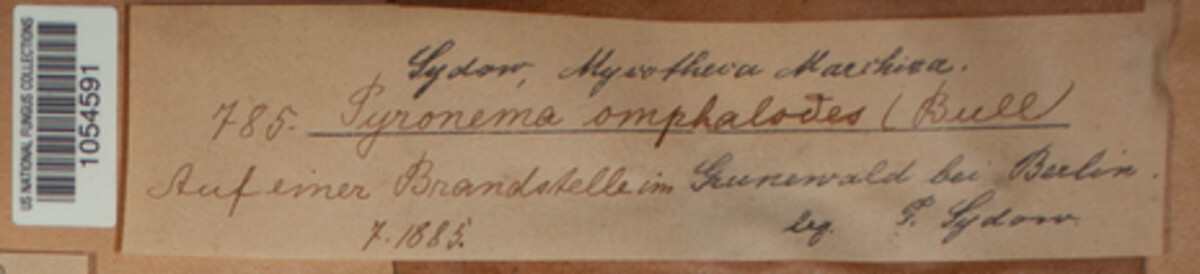 US NATIONAL FUNGUS COLLECTIONS
1054591
Sydow, Mycotheca Marchica.
785. Pyronema omphalodes (Bull)
Auf einer Brandstelle im Grunewald bei Berlin.
7. 1885.
leg. P. Sydow